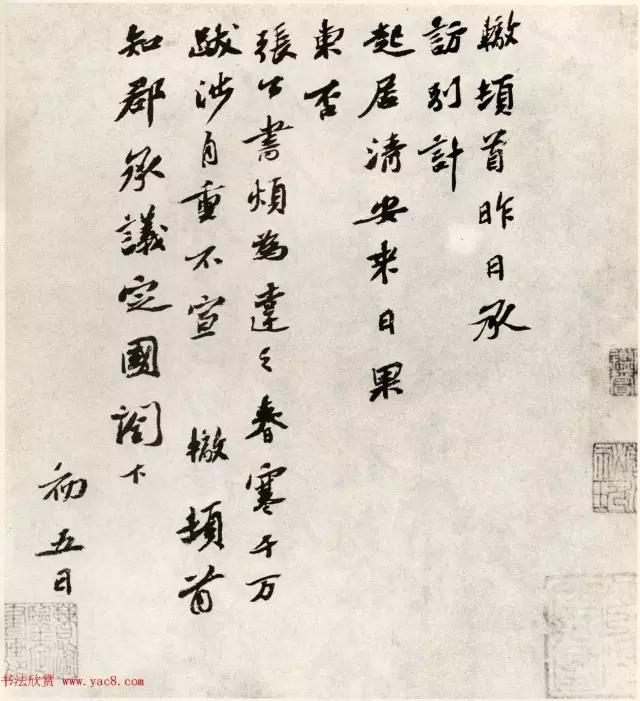 轍頓首昨日承
訪別計
起居清安來日果
東否
張公書煩為達之春寒千万
跋涉自重不宣 轍頓首
知郡承議定國閤下
初五日
书法欣赏 www.yac8.com